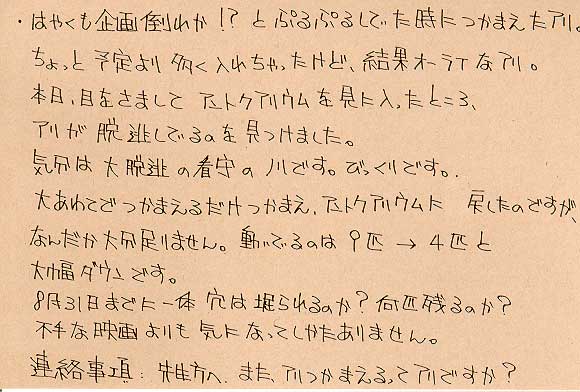 ・はやくも企画倒れか!?とぷるぷるしていた時につかまえたアリ。
ちょっと予定より多く入れちゃったけど、結果オーライなアリ。
本日、目をさまして アントクアリウムを見に入ったところ、
アリが 脱逃しているのを見つけました。
気分は 大脱逃 の看守 の 川です。びっくりです。
大あわてで つかまえるだけつかまえ、アントクアリウムに 戻したのですが、
なんだか大分足りません。動いてるのは 9匹 → 4匹 と
大幅ダウンです。
8月31日までに一体 穴は堀られるのか? 何匹残るのか?
下手な映画よりも 気になってしかたありません。
連絡事項: 先生方へ. また、アリつかまえるってアリですか?